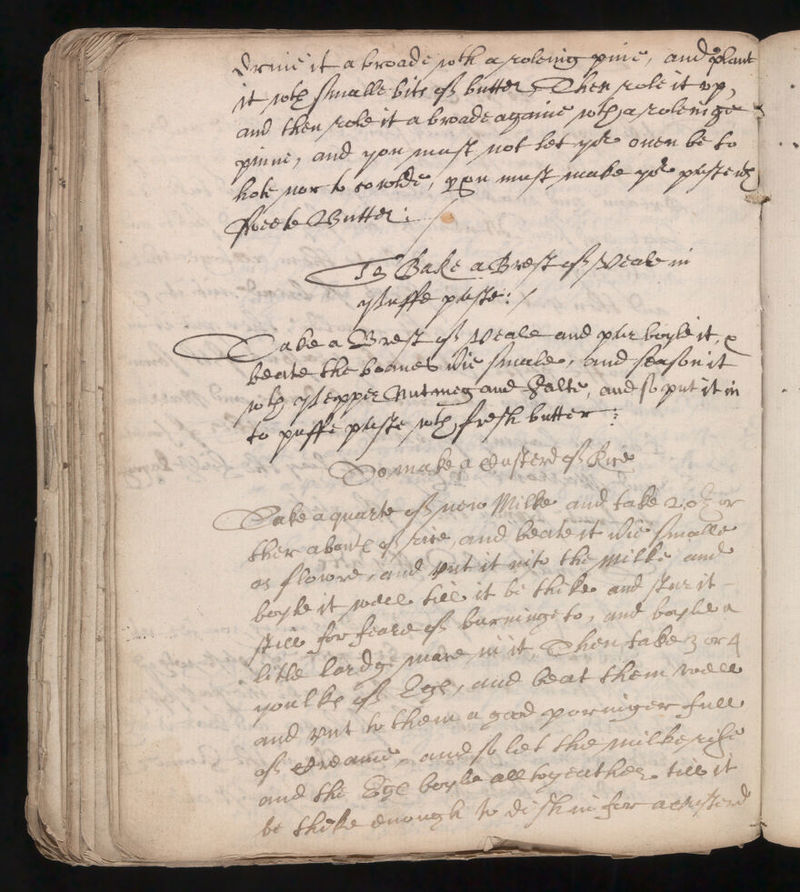 drive it abroade wth a roleing pine, and plant
it wth smalle bits of butter, Then role it up,
and then role it abroade againe wth a rolenige
pinne, and you must not let yor oven be to
hote nor to cowlde, you must make yor paste wth
sweete Butter:
To Bake a Brest of Veale in
puffe paste:
Take a Brest of Veale and par boyle it, &
beate the boanes smale, and season it
wth pepper Nutmeg and Salte, and so put it in
to puffe paste wth fresh butter:
To make a Custerd of Rice
Take a quarte of new Milke and take 2 oz or
ther about of rice, and beate it smalle
as flowre, and put it into the Milke and
boyle it well till it be thike and stur it
still for feare of burninge to, and boyle a
litle lardge mace in it, Then take 3 or 4
youlks of Egs, and beat them well
and put to them a good poringer full
of Creame, and so let the milke rise
and the Egs boyle all togeather till it
be thike enough to dish in for a custerd